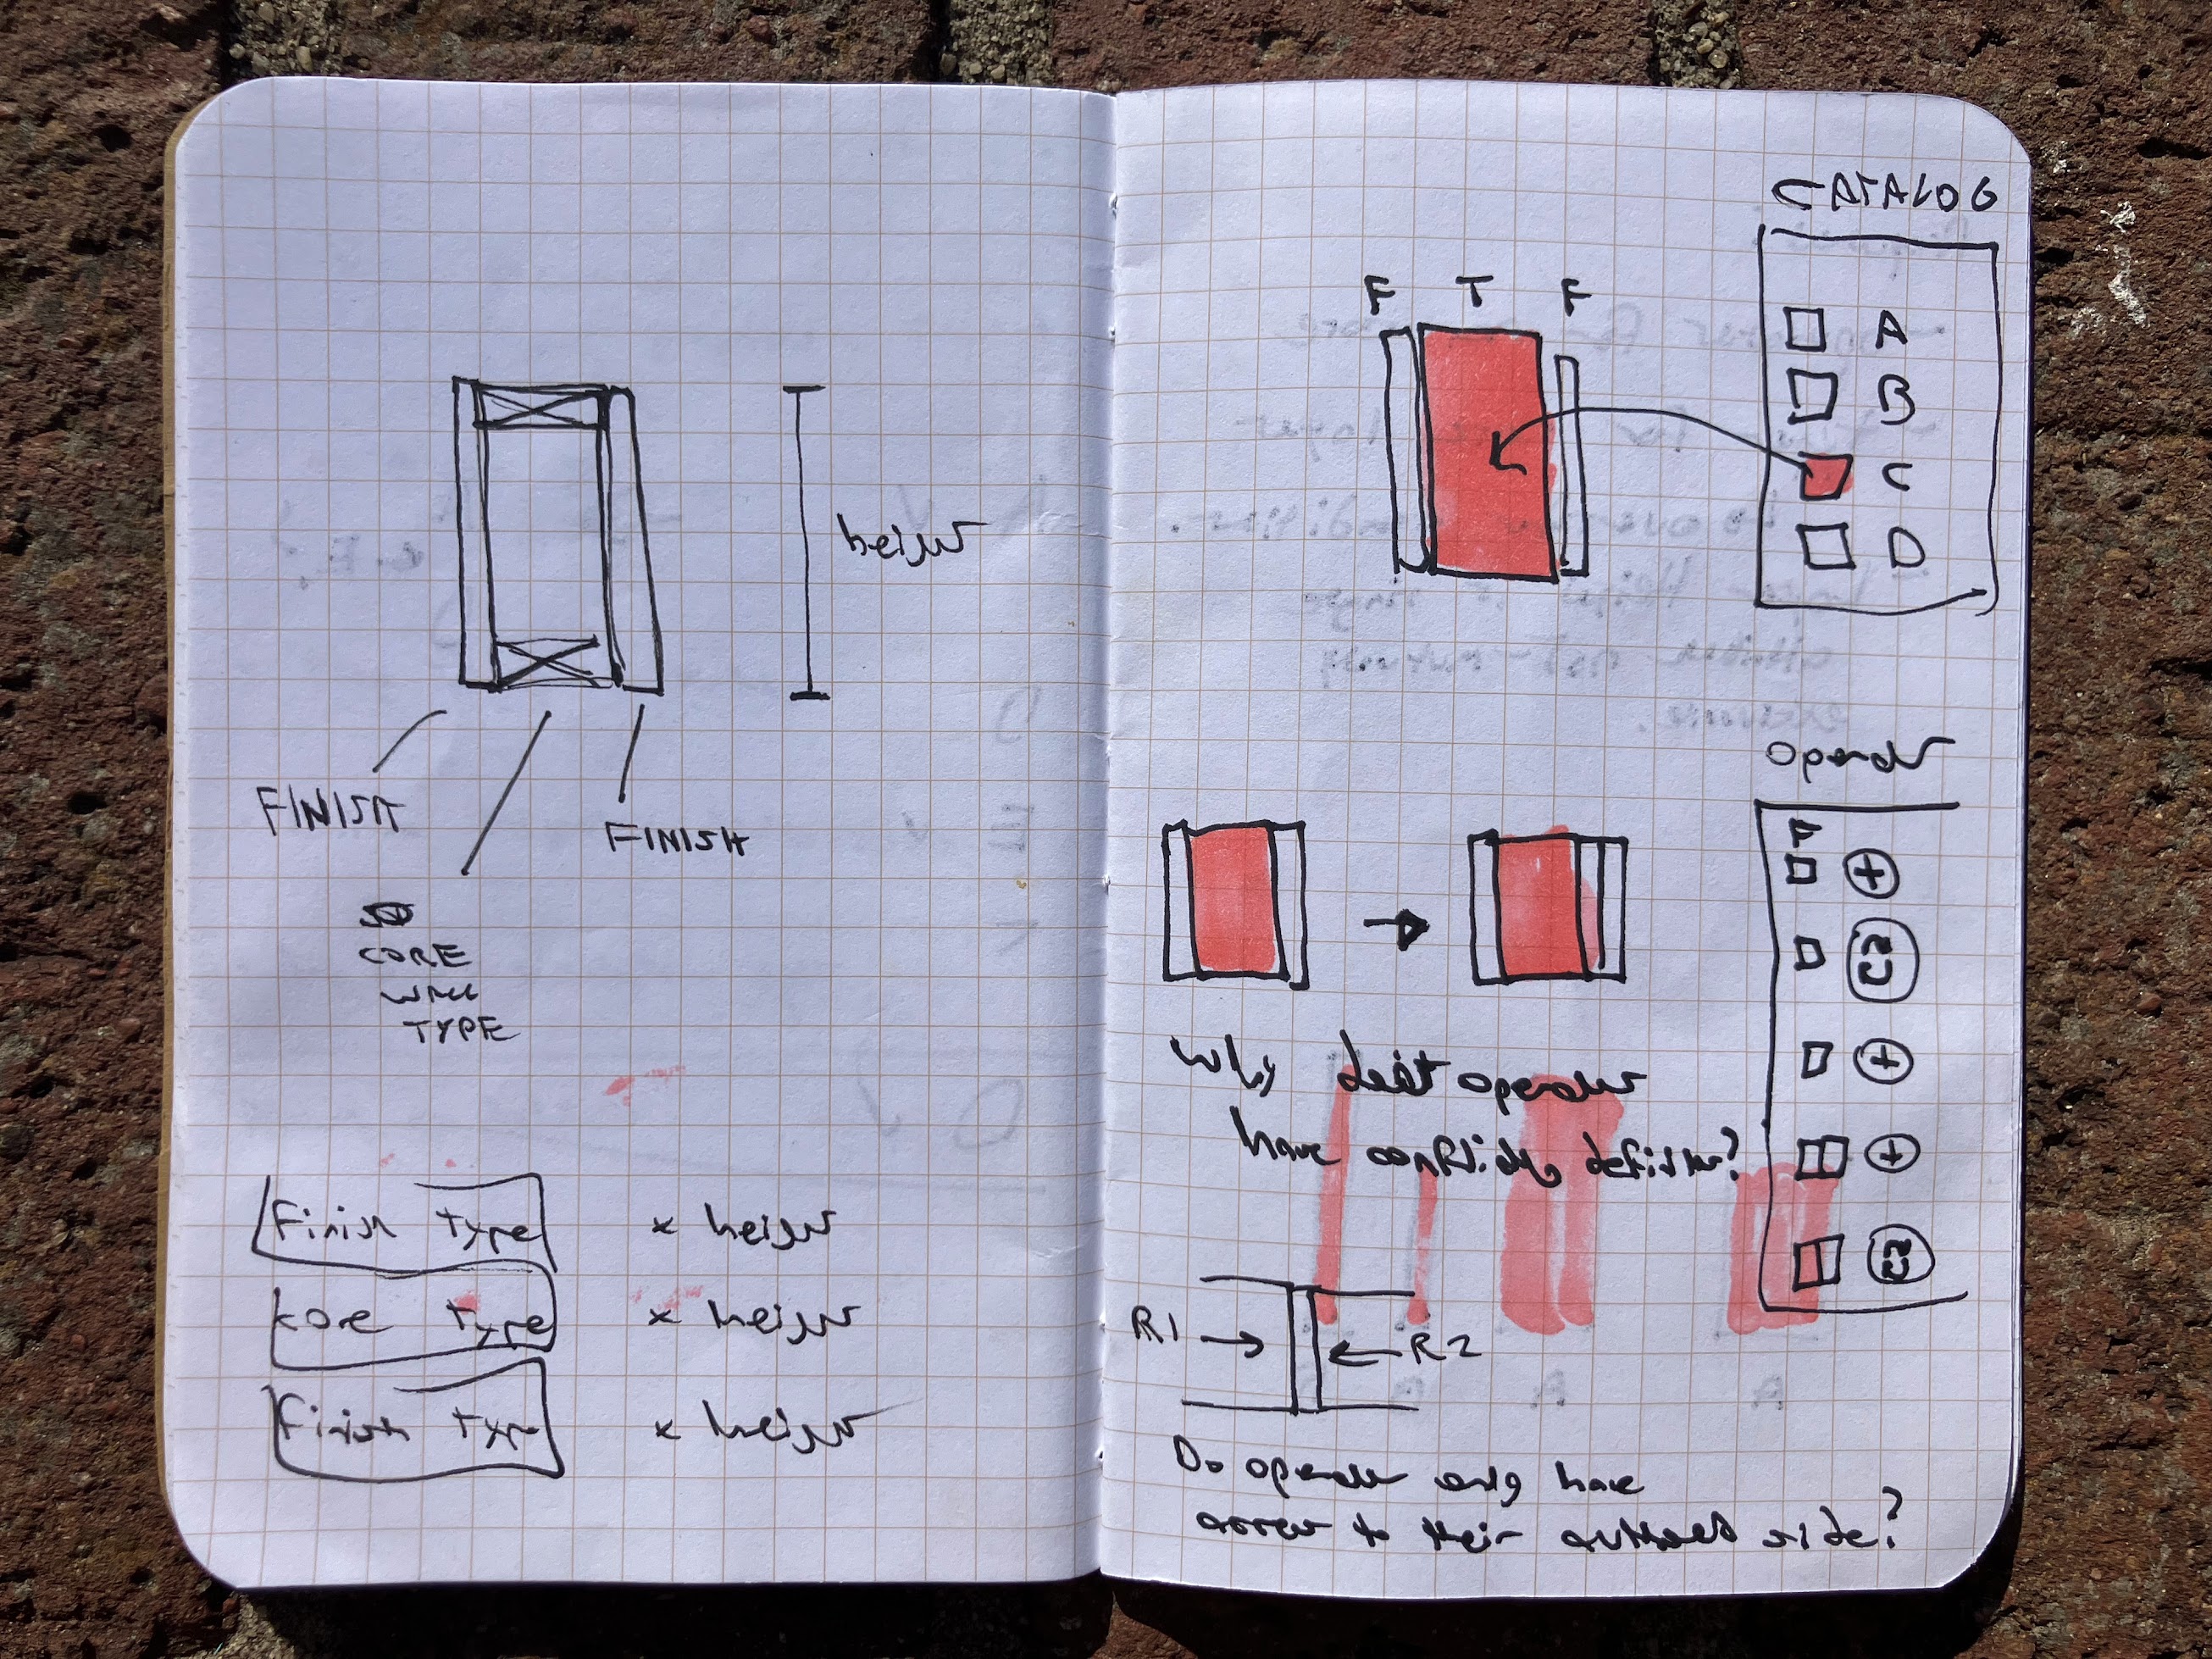 height
FINISH
FINISH
CORE
WALL
TYPE
Finish type x height
core type x height
Finish type x height
CATALOG
F T F
A
B
C
D
operator
Why don't operator
have conflicting definition?
R1
R2
Do operator only have
access to their side?